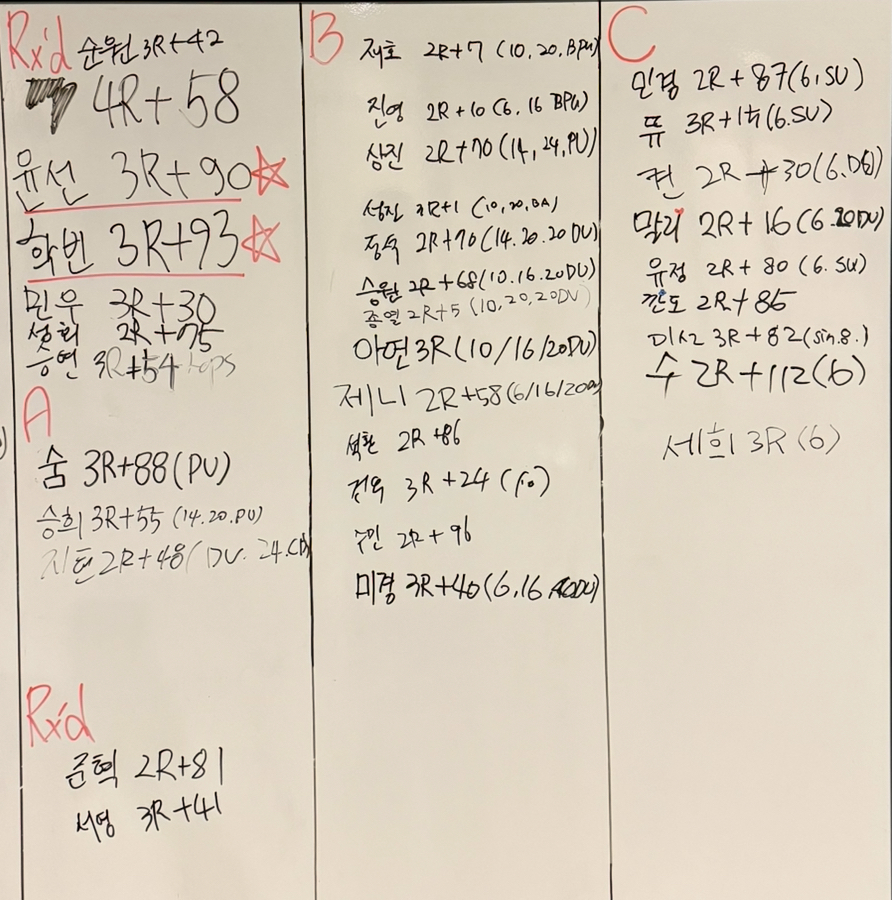 Rx'd 순원 3R+42
4R+58
윤선 3R+90
학빈 3R+93
민우 3R+30
성희 2R+75
승연 3R+54 reps
A
숨 3R+88(PU)
승희 3R+55 (14.20.PU)
지현 2R+48(DU.24.CD)
Rx'd
준혁 2R+81
서영 3R+41
B
재호 2R+7 (10,20,BPU)
진영 2R+10 (6,16 BPU)
상진 2R+70 (14,24,PU)
성진 2R+1 (10,20,BA)
정숙 2R+70(14.20.20DU)
승원 2R+68(10.16.20DU)
종열 2R+5 (10,20,20DU)
아연 3R(10/16/20DU)
제니 2R+58(6/16/20DU)
석환 2R+86
3R+24
수민 2R+96
미경 3R+40(6,16 20DU)
C
민경 2R+87(6,SU)
뜌 3R+15(6.SU)
퀸 2R+30(6.DU)
말리 2R+16(6.20DU)
유정 2R+80 (6.SU)
깐도 2R+86
미선 3R+82(sin8.)
수 2R+112(6)
세희 3R(6)